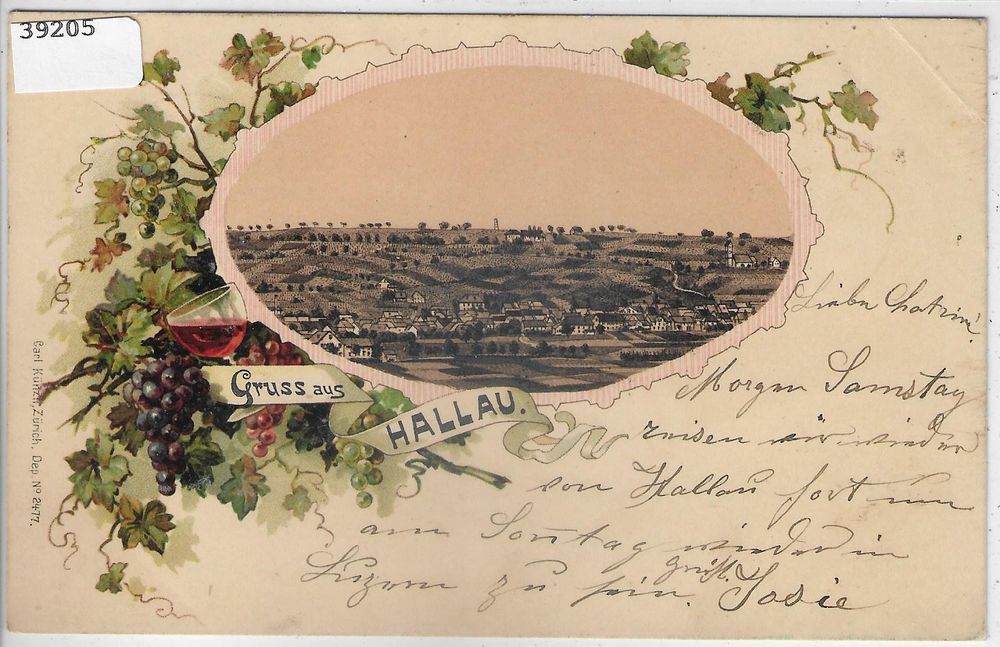 39205
Gruss aus
HALLAU.
Carl Künzli, Zürich. Dep. Nº 2477.
Liebe Catrini
Morgen Samstag
reisen wir wieder
von Hallau fort um
am Sontag wieder in
Luzern zu sein.
grüsst
Josie